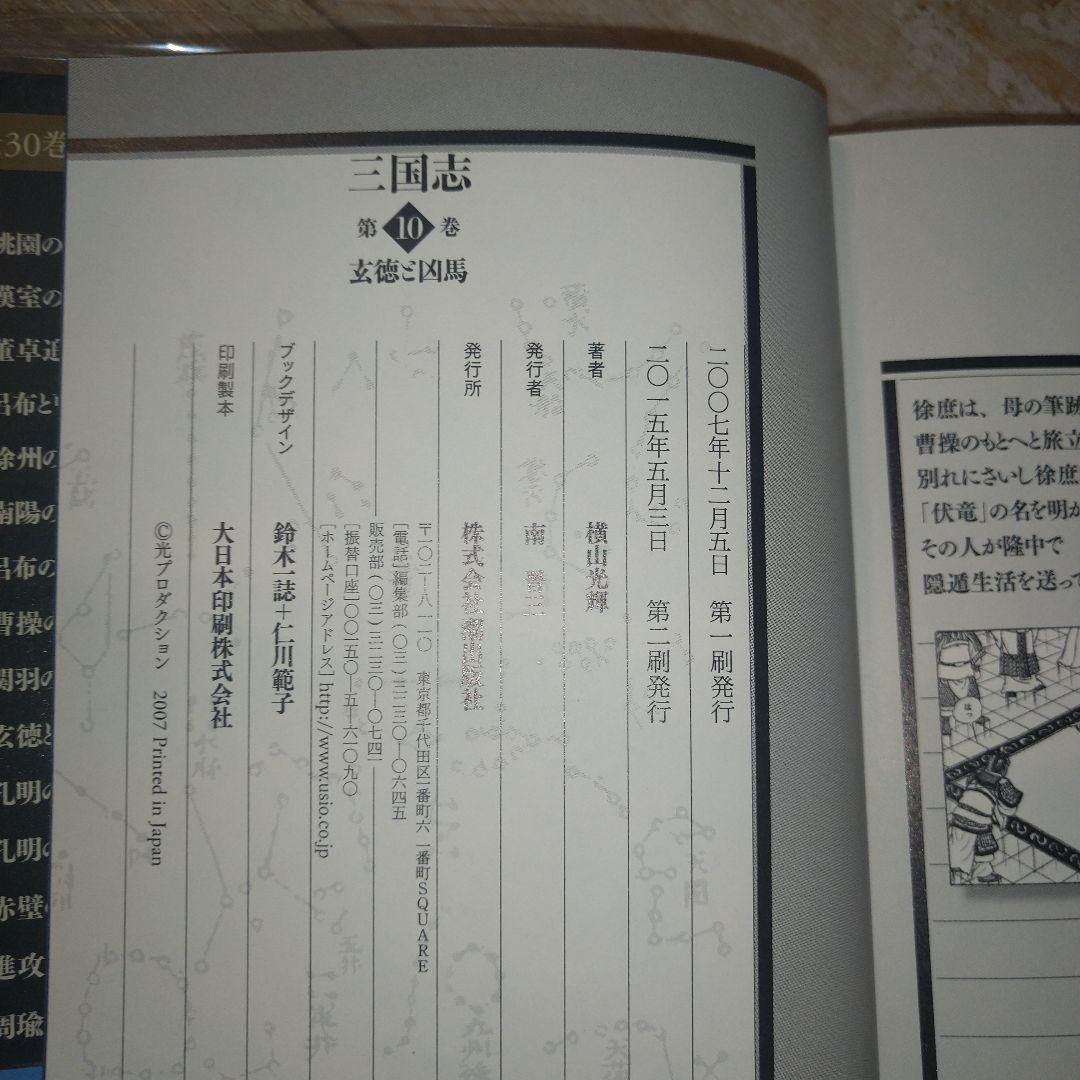 三国志
第10巻
玄徳と凶馬
二〇〇七年十二月五日 第一刷発行
二〇一五年五月三日 第二刷発行
著者 横山光輝
発行者 南
発行所 株式会社
〒一〇二-八一一〇 東京都千代田区一番町六 一番町SQUARE
[電話]編集部(〇三)三二三〇-〇六四五
販売部(〇三)三二三〇-〇七四一
[振替口座]〇〇一五〇-五-六一〇九〇
[ホームページアドレス]http://www.usio.co.jp
ブックデザイン 鈴木一誌+仁川範子
印刷製本 大日本印刷株式会社
©光プロダクション 2007 Printed in Japan
徐庶は、母の筆跡
曹操のもとへと旅立
別れにさいし徐庶
「伏竜」の名を明か
その人が隆中で
隠遁生活を送って
はっ
30巻
桃園の
漢室の
董卓追
呂布と
徐州の
南陽の
呂布の
曹操の
関羽の
玄徳と
孔明の
孔明の
赤壁の
進攻
周瑜